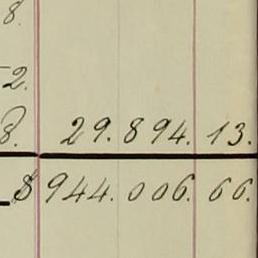 8.
2.
8. 29.894.13.
$944.006.66.